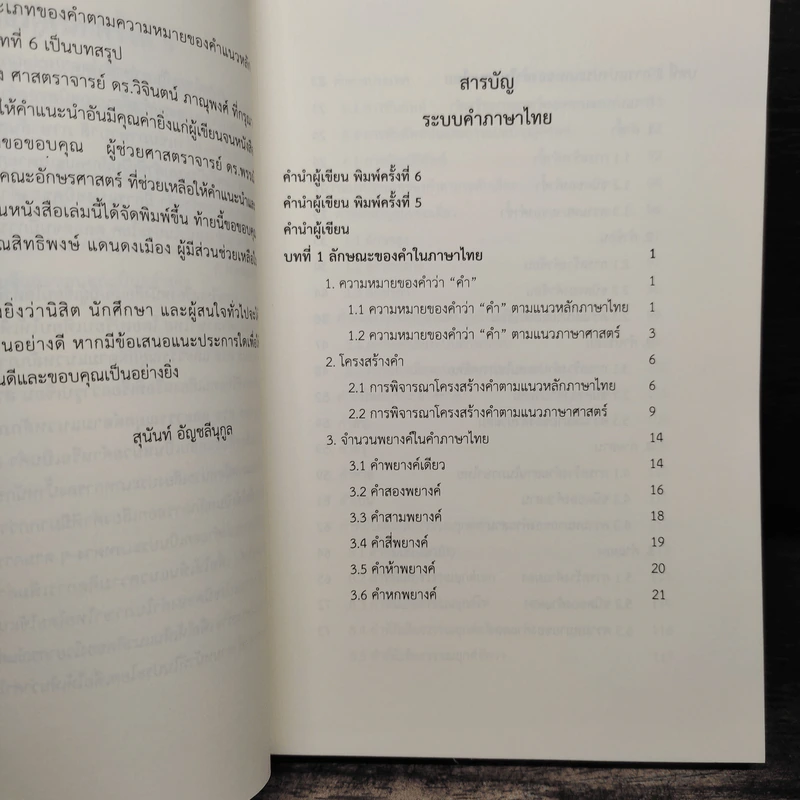 ะเภทของคำตามความหมายของคำแนวหลัก
ทที่ 6 เป็นบทสรุป
ศาสตราจารย์ ดร.วิจินตน์ ภาณุพงศ์ ที่กรุณา
ให้คำแนะนำอันมีคุณค่ายิ่งแก่ผู้เขียนจนหนังสือ
ขอขอบคุณ ผู้ช่วยศาสตราจารย์ ดร.
คณะอักษรศาสตร์ ที่ช่วยเหลือให้คำแนะนำและ
นหนังสือเล่มนี้ได้จัดพิมพ์ขึ้น ท้ายนี้ขอขอบคุณ
ณสิทธิพงษ์ แดนดงเมือง ผู้มีส่วนช่วยเหลือ
ยิ่งว่านิสิต นักศึกษา และผู้สนใจทั่วไปจะ
นอย่างดี หากมีข้อเสนอแนะประการใดเพื่อ
นดีและขอบคุณเป็นอย่างยิ่ง
สุนันท์ อัญชลีนุกูล
สารบัญ
ระบบคำภาษาไทย
คำนำผู้เขียน พิมพ์ครั้งที่ 6
คำนำผู้เขียน พิมพ์ครั้งที่ 5
คำนำผู้เขียน
บทที่ 1 ลักษณะของคำในภาษาไทย 1
1. ความหมายของคำว่า “คำ” 1
1.1 ความหมายของคำว่า “คำ” ตามแนวหลักภาษาไทย 1
1.2 ความหมายของคำว่า “คำ” ตามแนวภาษาศาสตร์ 3
2. โครงสร้างคำ 6
2.1 การพิจารณาโครงสร้างคำตามแนวหลักภาษาไทย 6
2.2 การพิจารณาโครงสร้างคำตามแนวภาษาศาสตร์ 9
3. จำนวนพยางค์ในคำภาษาไทย 14
3.1 คำพยางค์เดียว 14
3.2 คำสองพยางค์ 16
3.3 คำสามพยางค์ 18
3.4 คำสี่พยางค์ 19
3.5 คำห้าพยางค์ 20
3.6 คำหกพยางค์ 21